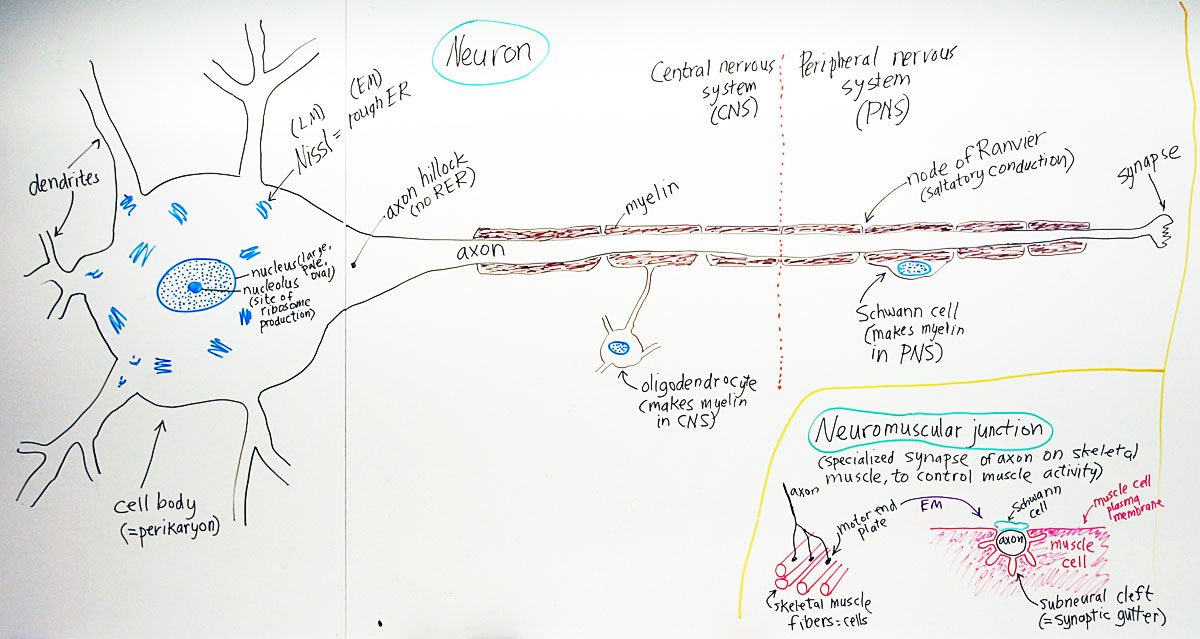 Neuron
Central nervous
system
(CNS)
Peripheral nervous
system
(PNS)
dendrites
(LM)
Nissl =
(EM)
rough ER
axon hillock
(no RER)
myelin
node of Ranvier
(saltatory conduction)
synapse
axon
nucleus (large,
pale,
oval)
nucleolus
(site of
ribosome
production)
Schwann cell
(makes myelin
in PNS)
oligodendrocyte
(makes myelin
in CNS)
cell body
(=perikaryon)
Neuromuscular junction
(specialized synapse of axon on skeletal
muscle, to control muscle activity)
axon
motor end
plate
EM
Schwann
cell
muscle cell
plasma
membrane
axon
muscle
cell
skeletal muscle
fibers = cells
subneural cleft
(=synaptic gutter)